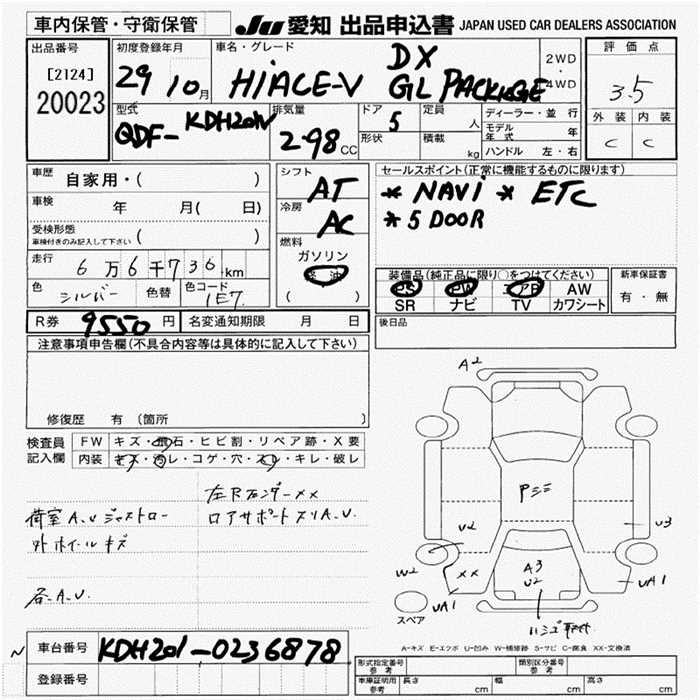 車内保管・守衛保管
JU 愛知 出品申込書 JAPAN USED CAR DEALERS ASSOCIATION
出品番号
[2124]
20023
初度登録年月
29 10月
車名・グレード
HiACE-V
DX
GL PACKAGE
2WD
・
4WD
評価点
3.5
外装 内装
C C
型式
QDF-KDH201V
排気量
2.98 CC
ドア 5
形状
定員 人
積載 kg
ディーラー・並行
モデル年式 年
ハンドル 左・右
車歴 自家用・( )
車検 年 月( 日)
受検形態
車検付きのみ記入して下さい ( )
走行 6万6千736km
色 シルバー 色替 色コード 1E7
シフト AT
冷房 AC
燃料
ガソリン
軽油
( )
セールスポイント(正常に機能するものに限ります)
* NAVi * ETC
* 5 DOOR
装備品(純正品に限り○をつけてください)
PS PW エアB AW
SR ナビ TV カワシート
新車保証書
有・無
R券 9550円 名変通知期限 月 日
後日品
注意事項申告欄(不具合内容等は具体的に記入して下さい)
修復歴 有 (箇所 )
検査員記入欄
FW キズ・飛石・ヒビ割・リペア跡・X要
内装 キズ・汚レ・コゲ・穴・スレ・キレ・破レ
左Rフェンダー××
荷室A.U ジャストロー
ロアサポートスリA.U.
外ホイールキズ
各-A.U.
A2
Pシミ
U2
U3
W2
××
A3
U2
UA1
UA1
スペア
ハンコ取付
A-キズ E-エクボ U-凹み W-補修跡 S-サビ C-腐食 XX-交換済
車台番号 KDH201-0236878
登録番号
形式指定番号
参考
類別区分番号
参考
車庫証明用
参考
長さ cm 幅 cm 高さ cm